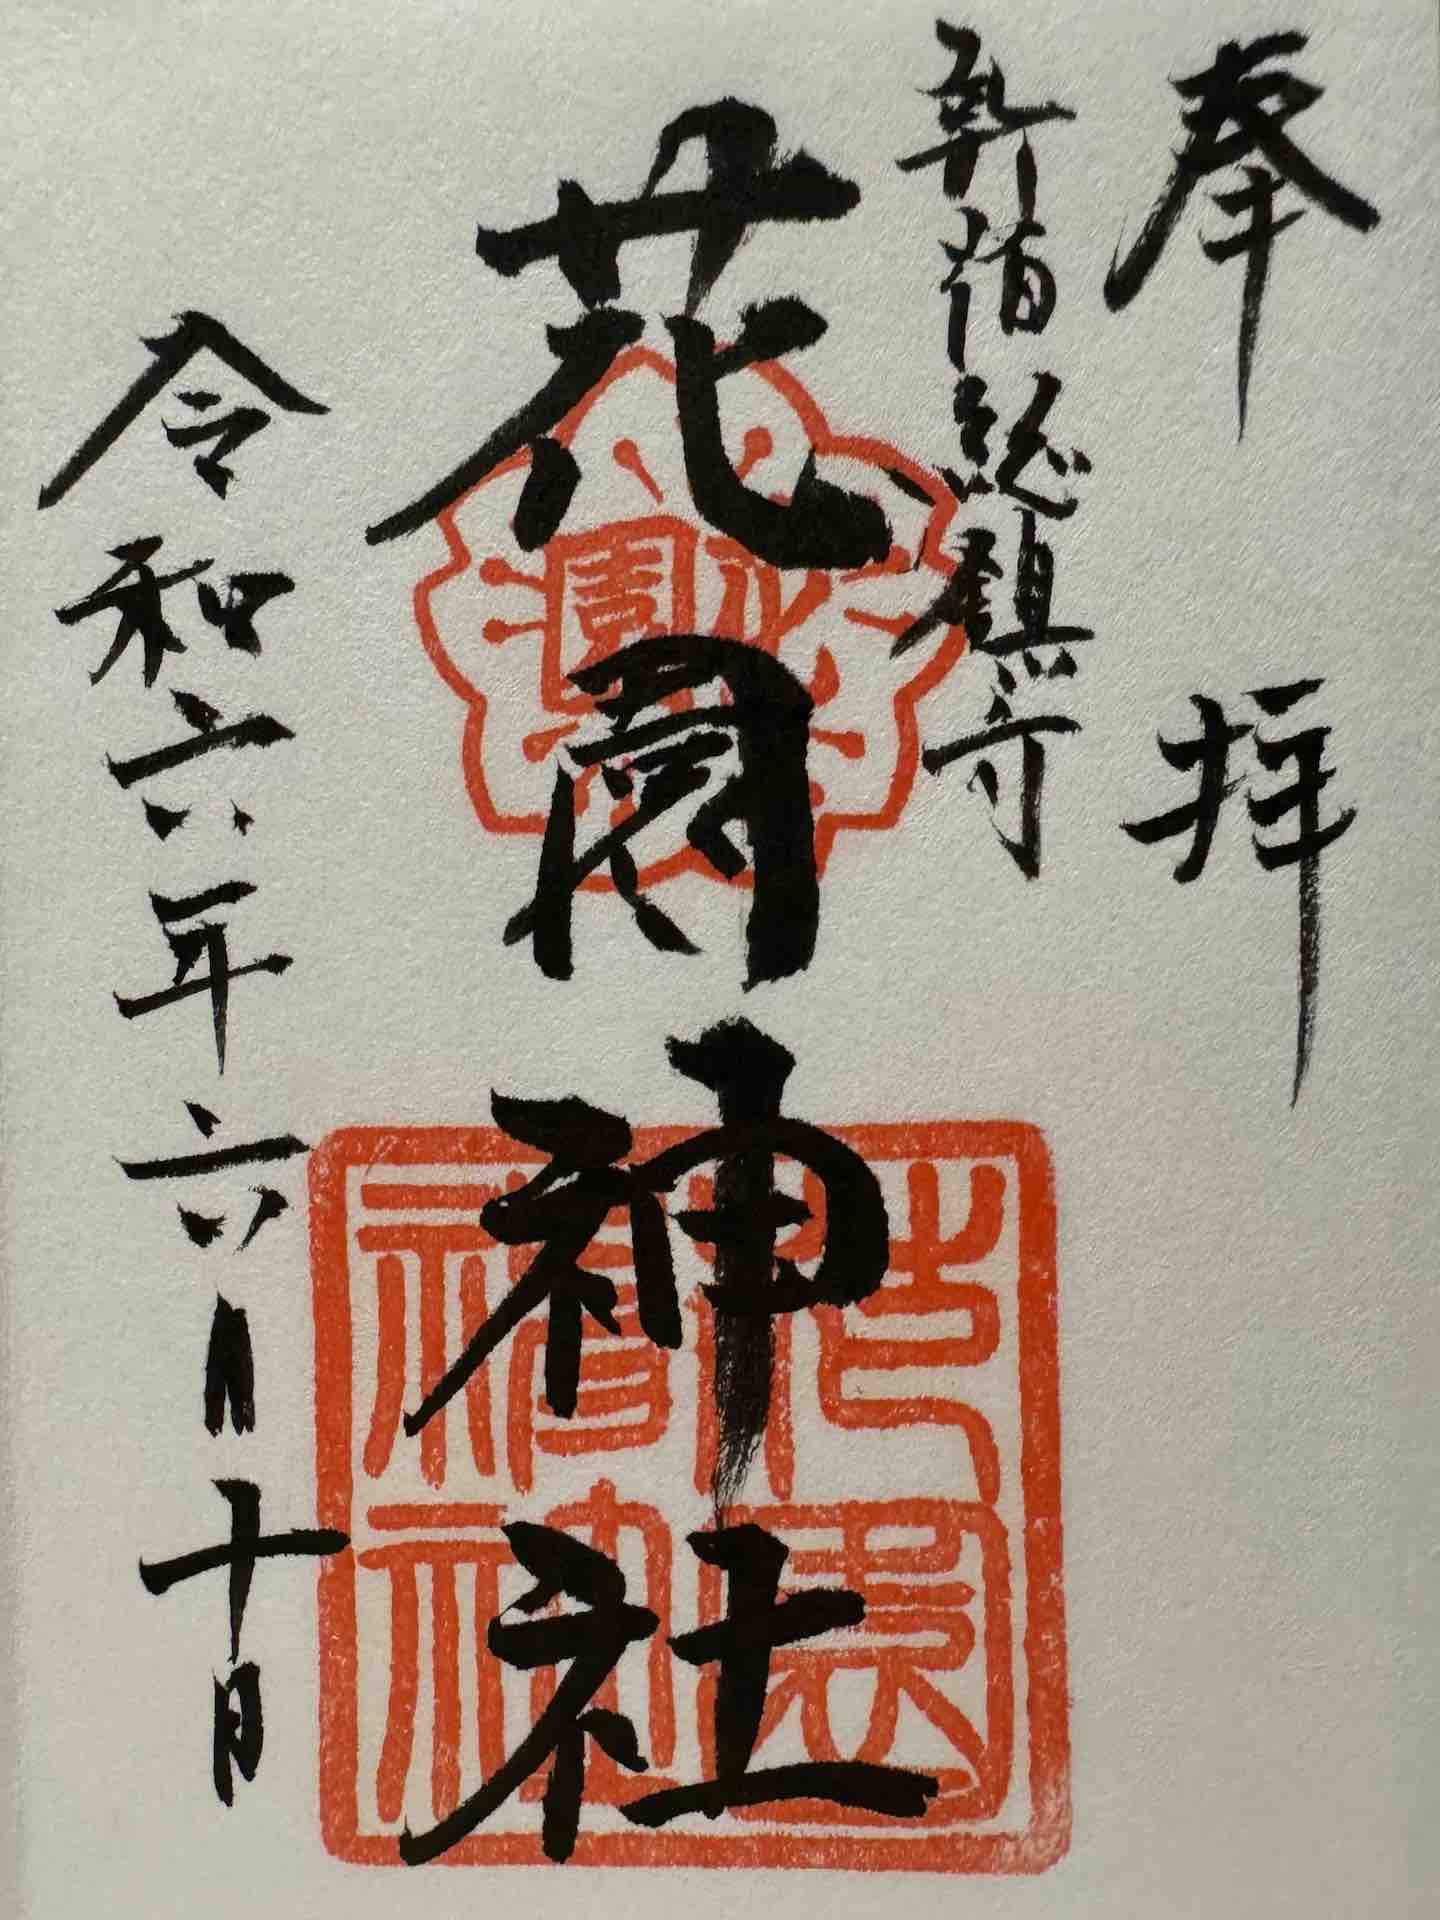 奉拝
新宿総鎮守
花園神社
令和六年六月十日
花園
稲荷
神社